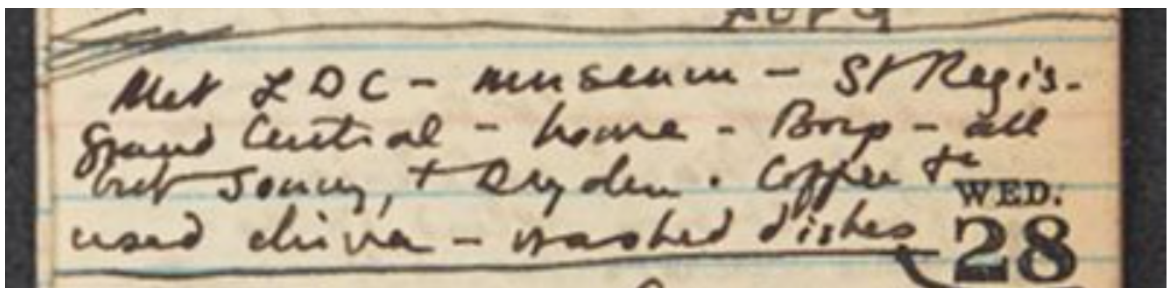 Met LDC - museum - St Regis -
Grand Central - home - Boys - all
but Jouny, + Dryden. Coffee +
WED.
used china - washed dishes
28